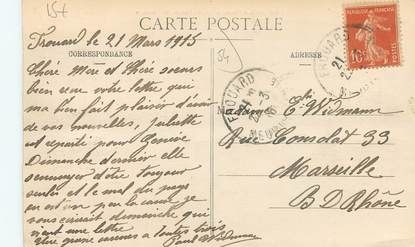 15+
54
CARTE POSTALE
CORRESPONDANCE
ADRESSE
Frouard le 21 Mars 1915
Chère Mère et chère soeurs
bien reçu votre lettre qui
ma bien fait plaisir d'avoir
de vos nouvelles, Juliette
est reparti pour Genève
Dimanche dernier elle
sennuyer d'être toujour
seule et le mal du pays
en est en par la cause je
vous écrirait dimanche qui
vient une lettre
plus grande
a toutes trois
Paul Widmann
Madame Widmann
Rue Consolat 33
Marseille
B D Rhône
FROUARD
10